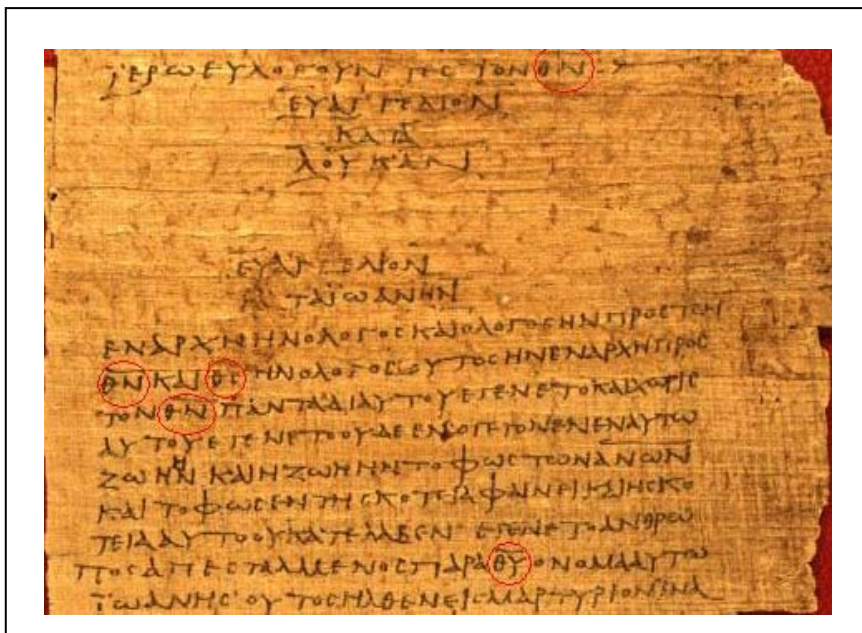 ΪΕΡΩ ΕΥΛΟΓΟΥΝΤΕϹ ΤΟΝ Θ̅Ν̅
ΕΥΑΓΓΕΛΙΟΝ
ΚΑΤΑ
ΛΟΥΚΑΝ
ΕΥΑΓΓΕΛΙΟΝ
ΚΑΤΑ ΪΩΑΝΗΝ
ΕΝ ΑΡΧΗ ΗΝ Ο ΛΟΓΟϹ ΚΑΙ Ο ΛΟΓΟϹ ΗΝ ΠΡΟϹ ΤΟΝ
Θ̅Ν̅ ΚΑΙ Θ̅Ϲ̅ ΗΝ Ο ΛΟΓΟϹ ΟΥΤΟϹ ΗΝ ΕΝ ΑΡΧΗ ΠΡΟϹ
ΤΟΝ Θ̅Ν̅ ΠΑΝΤΑ ΔΙ ΑΥΤΟΥ ΕΓΕΝΕΤΟ ΚΑΙ ΧΩΡΙϹ
ΑΥΤΟΥ ΕΓΕΝΕΤΟ ΟΥΔΕ ΕΝ Ο ΓΕΓΟΝΕΝ ΕΝ ΑΥΤΩ
ΖΩΗ ΗΝ ΚΑΙ Η ΖΩΗ ΗΝ ΤΟ ΦΩϹ ΤΩΝ Α̅Ν̅Ω̅Ν̅
ΚΑΙ ΤΟ ΦΩϹ ΕΝ ΤΗ ϹΚΟΤΕΙΑ ΦΑΙΝΕΙ ΚΑΙ Η ϹΚΟ
ΤΕΙΑ ΑΥΤΟ ΟΥ ΚΑΤΕΛΑΒΕΝ ΕΓΕΝΕΤΟ ΑΝΘΡΩ
ΠΟϹ ΑΠΕϹΤΑΛΜΕΝΟϹ ΠΑΡΑ Θ̅Υ̅ ΟΝΟΜΑ ΑΥΤΩ
ΪΩΑΝΗϹ ΟΥΤΟϹ ΗΛΘΕΝ ΕΙϹ ΜΑΡΤΥΡΙΟΝ ΙΝΑ